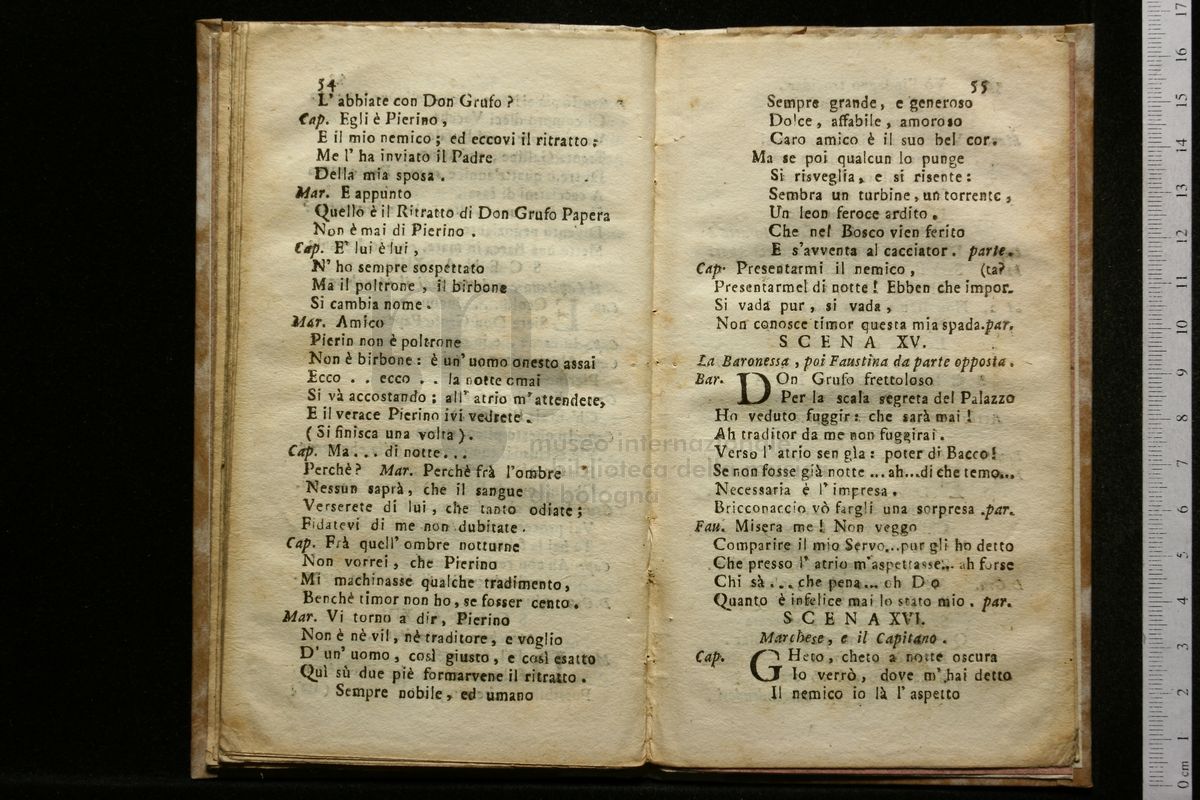 54
L' abbiate con Don Grufo ?
Cap. Egli è Pierino ,
E il mio nemico ; ed eccovi il ritratto :
Me l' ha inviato il Padre
Della mia sposa .
Mar. E appunto
Quello è il Ritratto di Don Grufo Papera
Non è mai di Pierino .
Cap. E' lui è lui ,
N' ho sempre sospettato
Ma il poltrone , il birbone
Si cambia nome .
Mar. Amico
Pierin non è poltrone
Non è birbone : è un' uomo onesto assai
Ecco . . ecco . . la notte omai
Si và accostando ; all' atrio m' attendete,
E il verace Pierino ivi vedrete .
( Si finisca una volta ) .
Cap. Ma . . . di notte . . .
Perchè ? Mar. Perchè frà l'ombre
Nessun saprà , che il sangue
Verserete di lui , che tanto odiate ;
Fidatevi di me non dubitate .
Cap. Frà quell' ombre notturne
Non vorrei , che Pierino
Mi machinasse qualche tradimento ,
Benchè timor non ho , se fosser cento .
Mar. Vi torno a dir , Pierino
Non è nè vil , nè traditore , e voglio
D' un' uomo , così giusto , e così esatto
Quì sù due piè formarvene il ritratto .
Sempre nobile , ed umano
55
Sempre grande , e generoso
Dolce , affabile , amoroso
Caro amico è il suo bel cor .
Ma se poi qualcun lo punge
Si risveglia , e si risente :
Sembra un turbine , un torrente ,
Un leon feroce ardito .
Che nel Bosco vien ferito
E s'avventa al cacciator . parte .
Cap. Presentarmi il nemico , (ta?
Presentarmel di notte ! Ebben che impor-
Si vada pur , si vada ,
Non conosce timor questa mia spada. par.
SCENA XV.
La Baronessa , poi Faustina da parte opposta .
Bar. DOn Grufo frettoloso
Per la scala segreta del Palazzo
Ho veduto fuggir : che sarà mai !
Ah traditor da me non fuggirai .
Verso l' atrio sen gìa : poter di Bacco !
Se non fosse già notte ... ah...di che temo...
Necessaria è l' impresa .
Bricconaccio vò fargli una sorpresa . par.
Fau. Misera me ! Non veggo
Comparire il mio Servo...pur gli ho detto
Che presso l' atrio m'aspettasse... ah forse
Chi sà . . . che pena ... oh D o
Quanto è infelice mai lo stato mio . par.
SCENA XVI.
Marchese , e il Capitano .
Cap. GHeto , cheto a notte oscura
Io verrò , dove m' hai detto
Il nemico io là l' aspetto
museo internazionale
biblioteca della
di bologna
0 cm 1 2 3 4 5 6 7 8 9 10 11 12 13 14 15 16 17